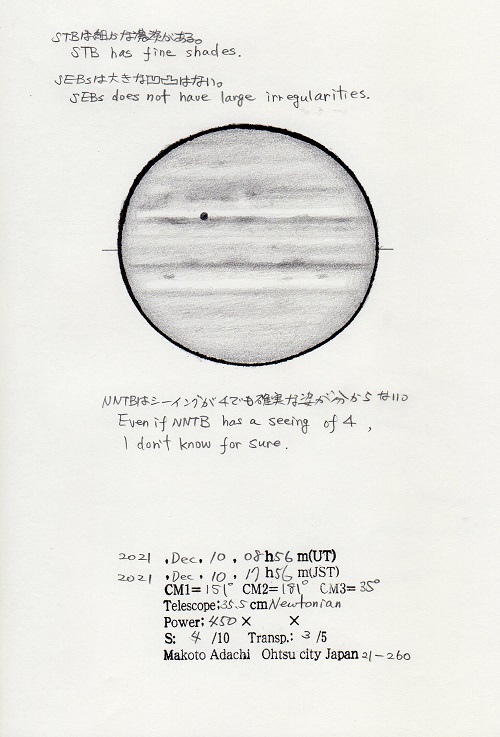 STBは細かな濃淡がある。
STB has fine shades.
SEBsは大きな凹凸はない。
SEBs does not have large irregularities.
NNTBはシーイングが4でも確実な姿が分からない。
Even if NNTB has a seeing of 4,
I don't know for sure.
2021 . Dec. 10 . 08h56m(UT)
2021 . Dec. 10 . 17h56m(JST)
CM1=151° CM2=181° CM3=35°
Telescope;35.5cm Newtonian
Power; 450× ×
S: 4 /10 Transp.: 3 /5
Makoto Adachi Ohtsu city Japan 21-260